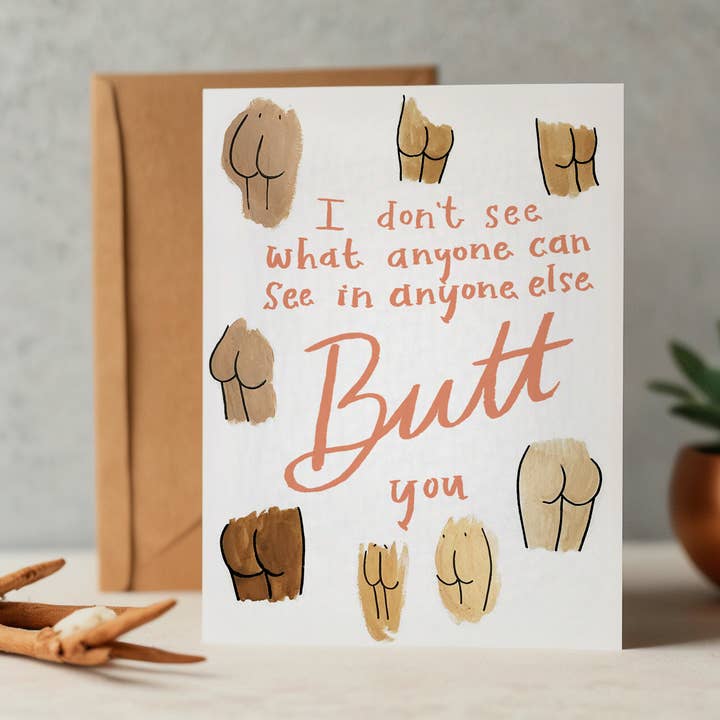 I don't see
what anyone can
See in anyone else
Butt
you